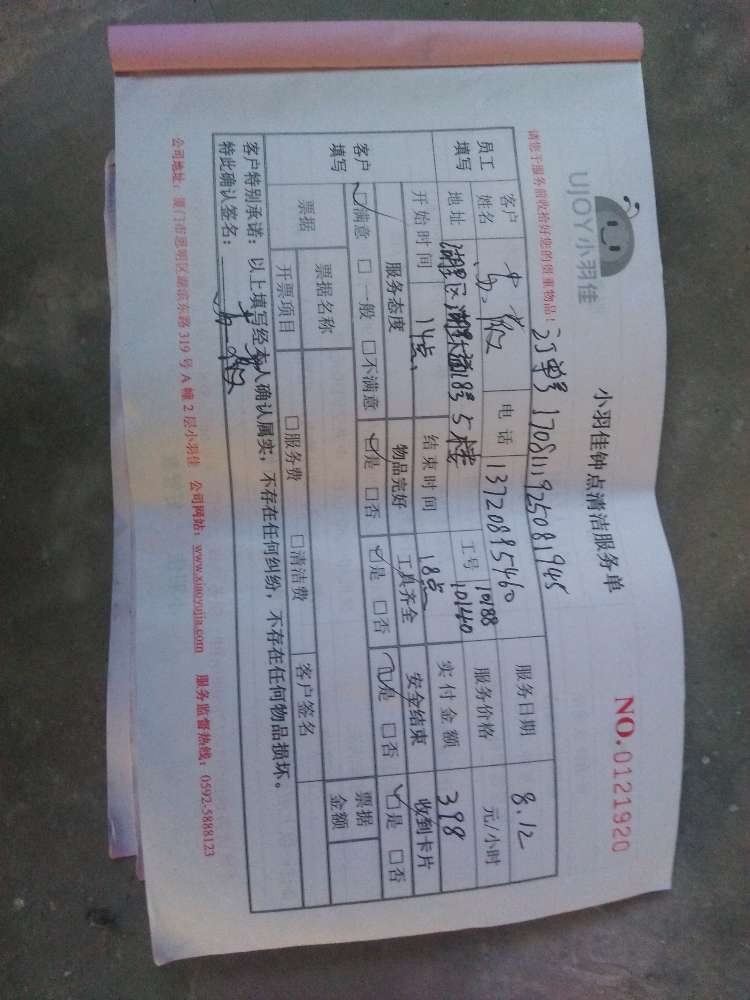 UJOY小羽佳
小羽佳钟点清洁服务单
NO.0121920
请您于服务前收拾好您的贵重物品!
订单号 170811925081945
员工填写
客户姓名 电话 13720895460 服务日期 8.12
地址 湖里区 185号5楼 工号 10188 10140 服务价格 元/小时
开始时间 14点 结束时间 18点 实付金额 398
客户填写
服务态度 物品完好 工具齐全 安全结束 收到卡片
☑满意 □一般 □不满意 ☑是 □否 ☑是 □否 ☑是 □否 ☑是 □否
票据 票据名称 客户签名 票据金额
开票项目 □服务费 □清洁费
客户特别承诺:以上填写经本人确认属实,不存在任何纠纷,不存在任何物品损坏。
特此确认签名:
公司地址:厦门市思明区湖滨东路319号A幢2层小羽佳 公司网站:www.xiaoyujia.com 服务监督热线:0592-5888123